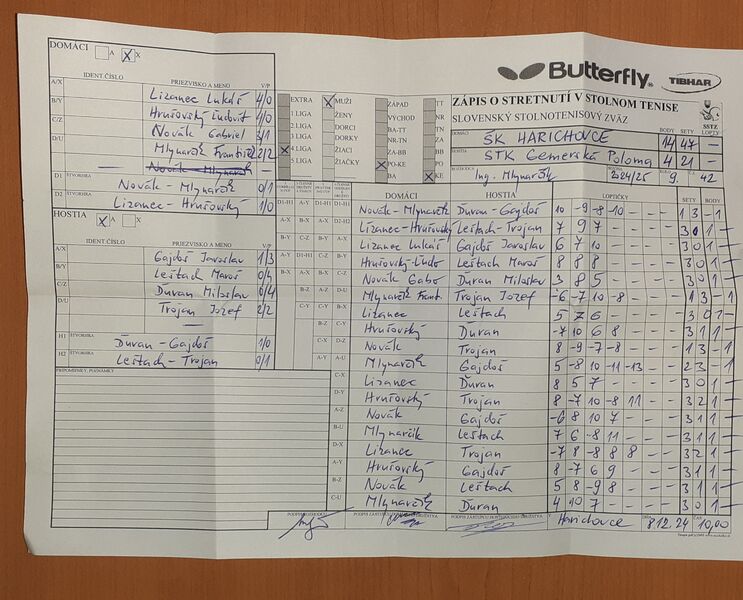 DOMÁCI A X X
IDENT. ČÍSLO PRIEZVISKO A MENO V/P
A/X Lizanec Lukáš 4/0
B/Y Hrušovský Ľudovít 4/0
C/Z Novák Gabriel 3/1
D/U Mlynarčík František 2/2
D1 ŠTVORHRA Novák - Mlynarčík 0/1
D2 ŠTVORHRA Lizanec - Hrušovský 1/0
HOSTIA X A X
IDENT. ČÍSLO PRIEZVISKO A MENO V/P
A/X Gajdoš Jaroslav 1/3
B/Y Leštach Maroš 0/4
C/Z Ďuran Miloslav 0/4
D/U Trojan Jozef 2/2
H1 ŠTVORHRA Ďuran - Gajdoš 1/0
H2 ŠTVORHRA Leštach - Trojan 0/1
PRIPOMIENKY, POZNÁMKY
Butterfly TIBHAR
ZÁPIS O STRETNUTÍ V STOLNOM TENISE
SLOVENSKÝ STOLNOTENISOVÝ ZVÄZ
SSTZ
EXTRA X MUŽI ZÁPAD TT
1.LIGA ŽENY VÝCHOD NR
2.LIGA DORCI BA-TT TN
3.LIGA DORKY NR-TN ZA
X 4.LIGA ŽIACI ZA-BB BB
5.LIGA ŽIAČKY X PO-KE PO
BA X KE
BODY SETY LOPTY
DOMÁCI ŠK HARICHOVCE 14 47 -
HOSTIA STK Gemerská Poloma 4 21 -
ROZHODCA Ing. Mlynarčík 2024/25 9. 42
DOMÁCI HOSTIA LOPTIČKY SETY BODY
Novák - Mlynarčík Ďuran - Gajdoš 10 -9 -8 -10 - - - 1 3 - 1
Lizanec - Hrušovský Leštach - Trojan 7 9 7 - - - - 3 0 1 -
Lizanec Lukáš Gajdoš Jaroslav 6 7 10 - - - 3 0 1 -
Hrušovský Ľudo Leštach Maroš 8 8 8 - - - 3 0 1 -
Novák Gabo Ďuran Miloslav 3 8 5 - - - 3 0 1 -
Mlynarčík Frant. Trojan Jozef -6 -7 10 -8 - - - 1 3 - 1
Lizanec Leštach 5 7 6 - - - 3 0 1 -
Hrušovský Ďuran -7 10 6 8 - - - 3 1 1 -
Novák Trojan 8 -9 -7 -8 - - - 1 3 - 1
Mlynarčík Gajdoš 5 -8 10 -11 -13 - - 2 3 - 1
Lizanec Ďuran 8 5 7 - - - 3 0 1 -
Hrušovský Trojan 8 -7 10 -8 11 - - 3 2 1 -
Novák Gajdoš -6 8 10 7 - - - 3 1 1 -
Mlynarčík Leštach 7 6 -8 11 - - - 3 1 1 -
Lizanec Trojan -7 8 -8 8 8 - - 3 2 1 -
Hrušovský Gajdoš 8 -7 6 9 - - - 3 1 1 -
Novák Leštach 5 8 -9 8 - - - 3 1 1 -
Mlynarčík Ďuran 4 10 7 - - - 3 0 1 -
Harichovce 8.12.24 10,00